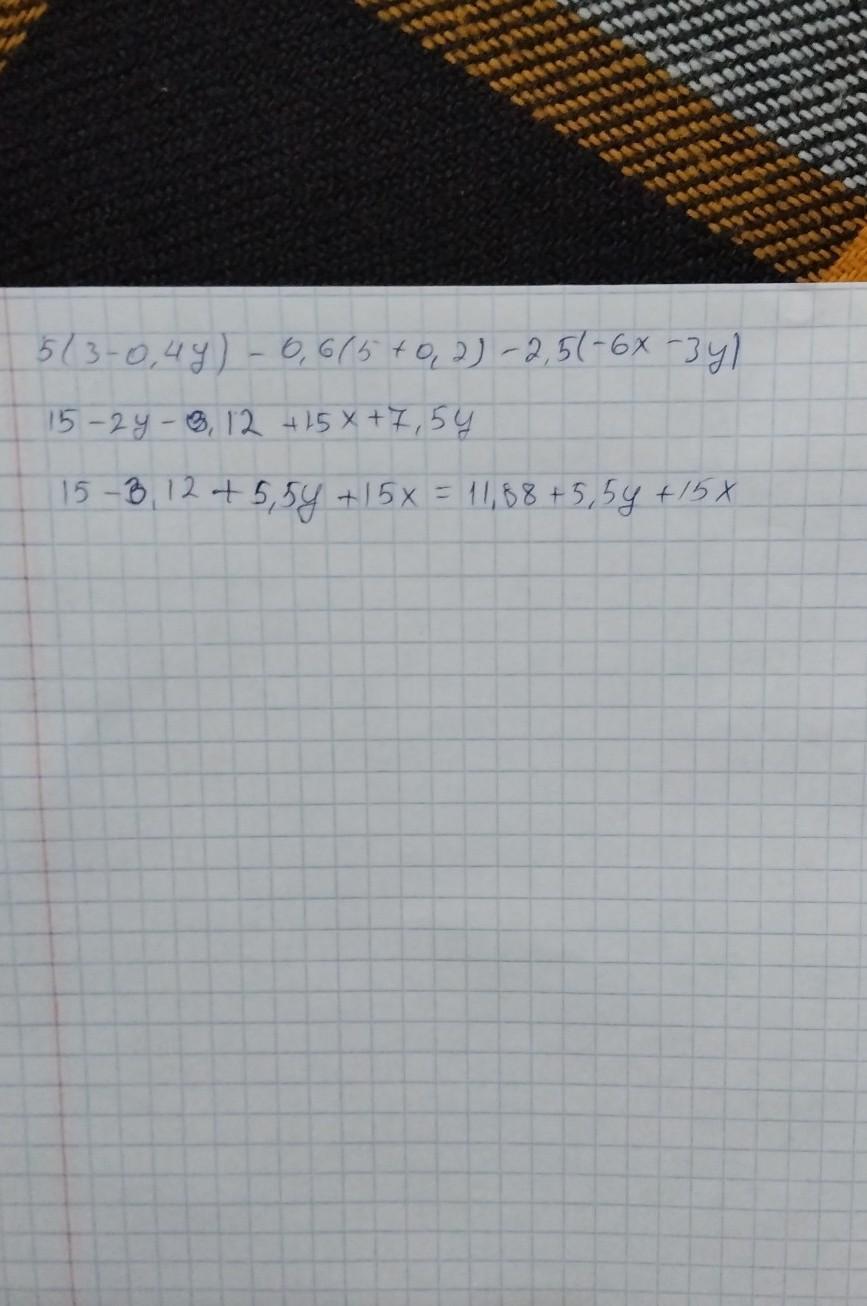 5(3-0,4y) - 0,6(5+0,2) -2,5(-6x-3y)
15-2y-3,12 +15x+7,5y
15-3,12+5,5y+15x = 11,88+5,5y+15x